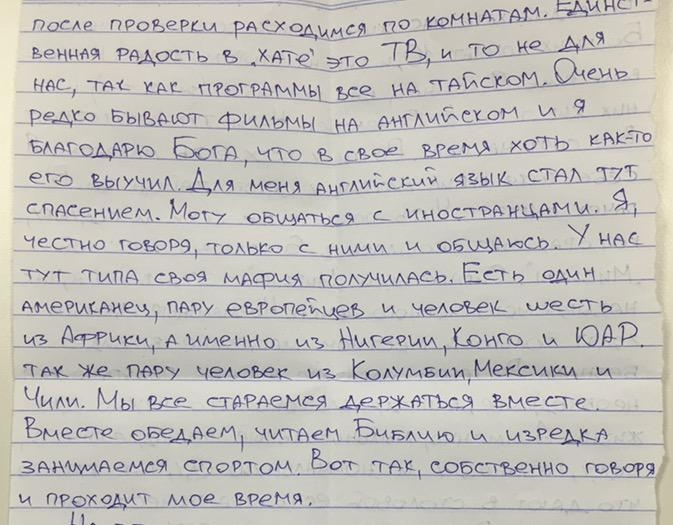 после проверки расходимся по комнатам. Единст-
венная радость в „хате" это ТВ, и то не для
нас, так как программы все на тайском. Очень
редко бывают фильмы на английском и я
благодарю Бога, что в свое время хоть как-то
его выучил. Для меня английский язык стал тут
спасением. Могу общаться с иностранцами. Я,
честно говоря, только с ними и общаюсь. У нас
тут типа своя мафия получилась. Есть один
американец, пару европейцев и человек шесть
из Африки, а именно из Нигерии, Конго и ЮАР.
так же пару человек из Колумбии, Мексики и
Чили. Мы все стараемся держаться вместе.
Вместе обедаем, читаем Библию и изредка
занимаемся спортом. Вот так, собственно говоря
и проходит мое время.